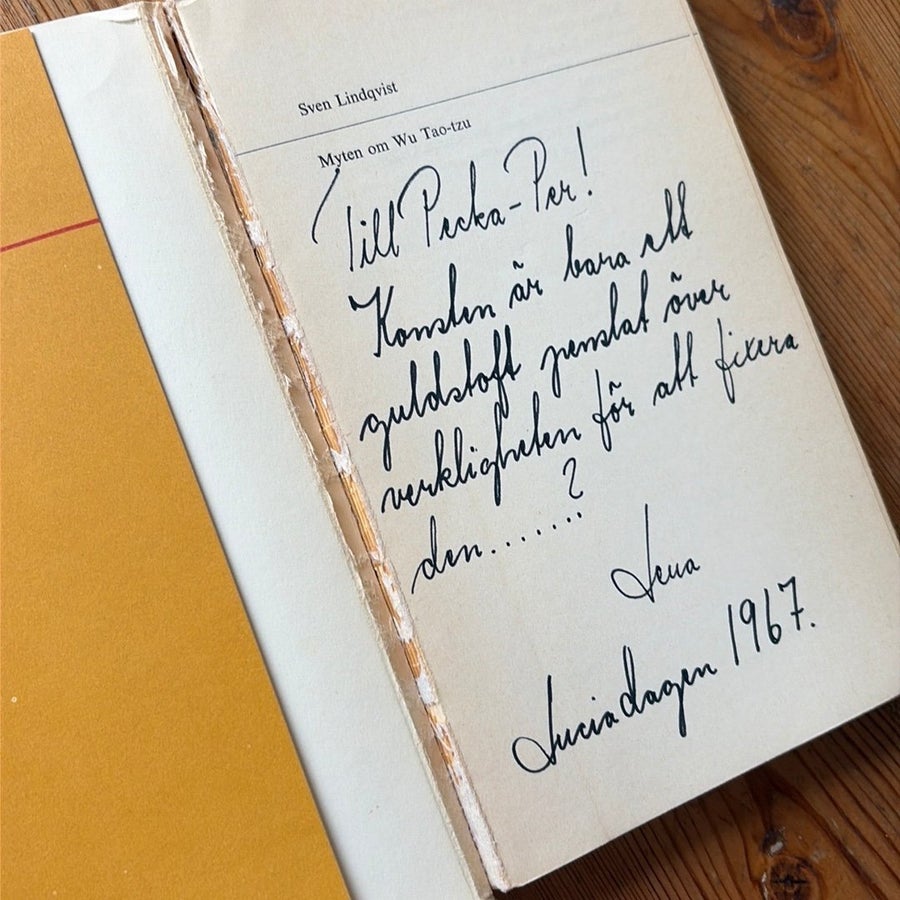 Sven Lindqvist
Myten om Wu Tao-tzu
Till Pecka-Per!
Konsten är bara ett
guldstoft penslat över
verkligheten för att fixera
den.......?
Lena
Luciadagen 1967.